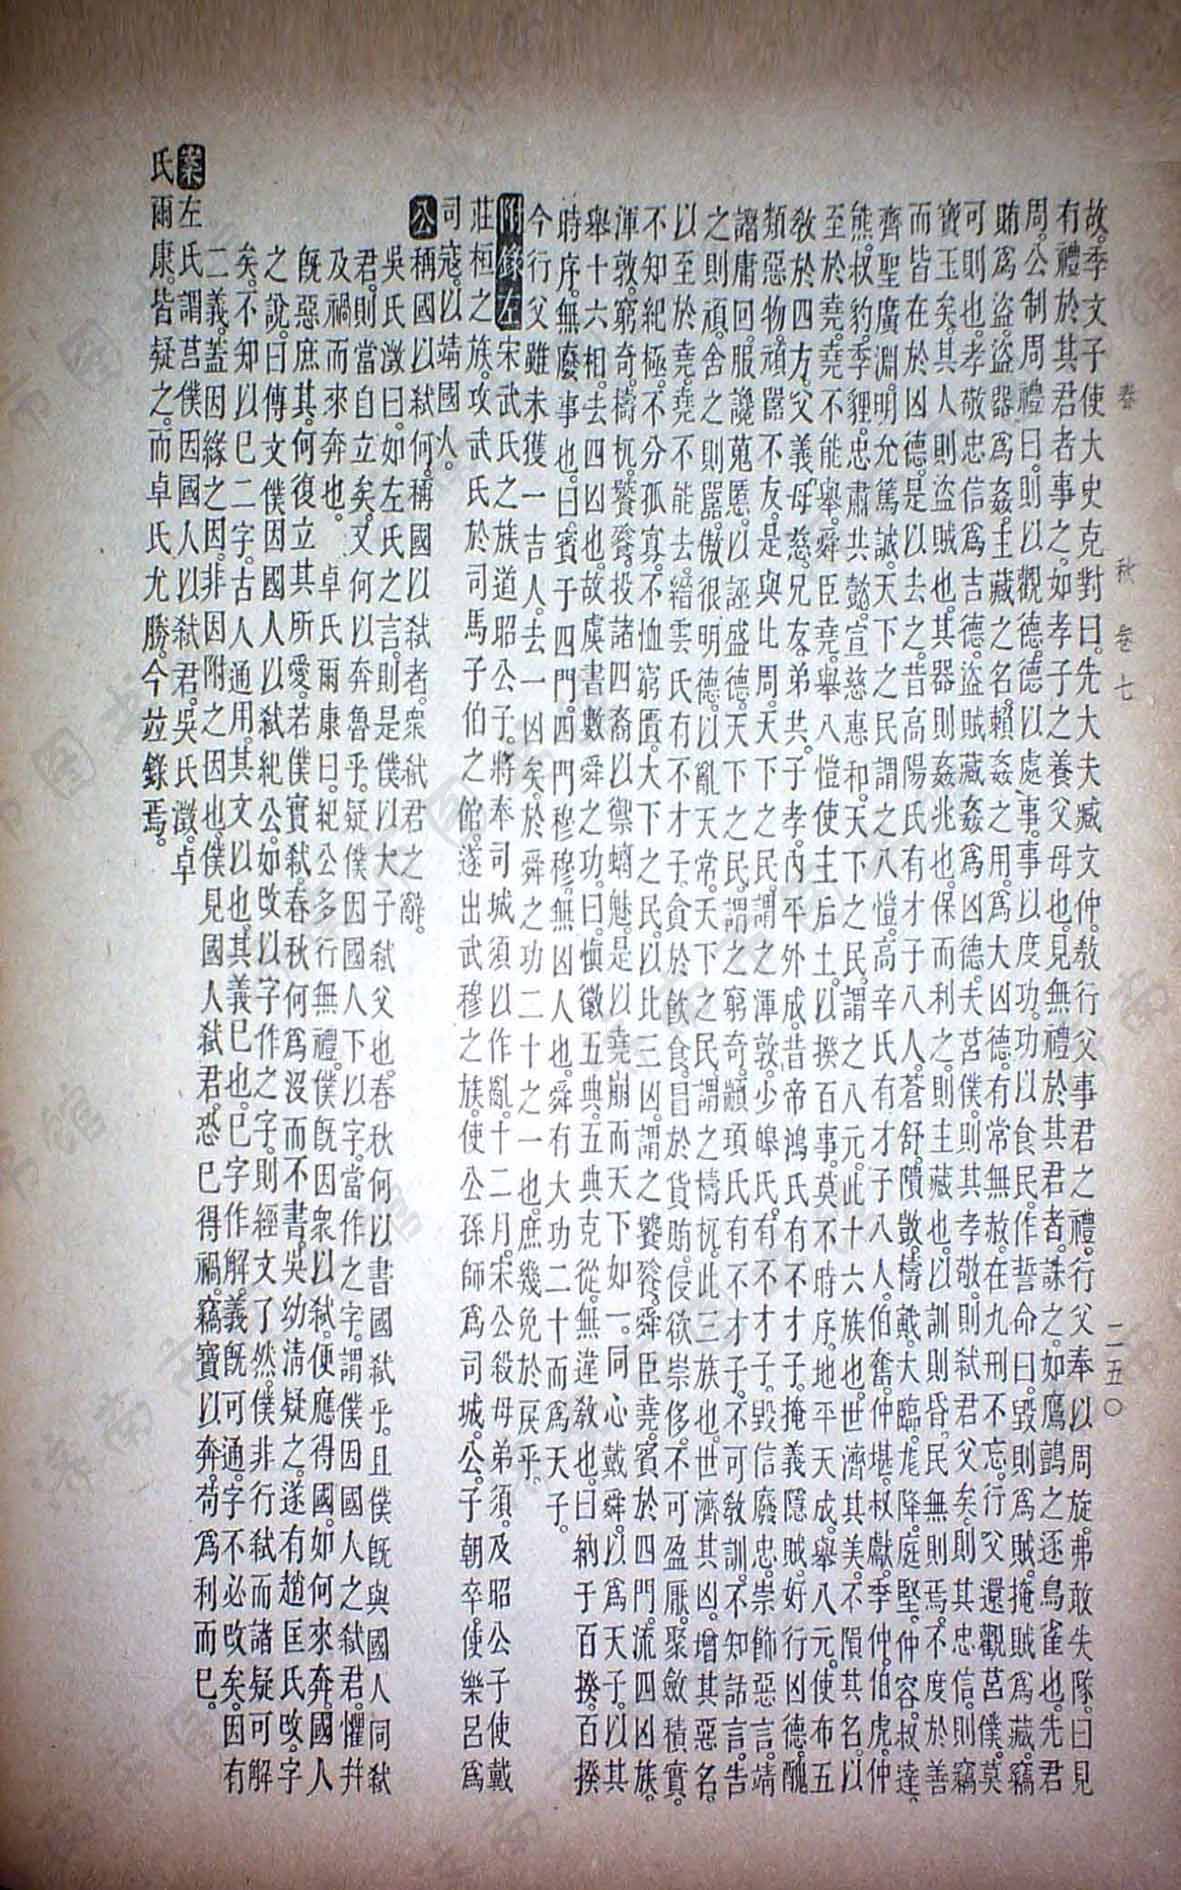 春秋卷七 二五〇
故季文子使大史克對曰。先大夫臧文仲。教行父事君之禮。行父奉以周旋。弗敢失隊。曰見
有禮於其君者。事之。如孝子之養父母也。見無禮於其君者。誅之。如鷹鸇之逐鳥雀也。先君
周公制周禮曰。則以觀德。德以處事。事以度功。功以食民。作誓命曰。毀則爲賊。掩賊爲藏。竊
賄爲盜。盜器爲姦。主藏之名。賴姦之用。爲大凶德。有常無赦。在九刑不忘。行父還觀莒僕。莫
可則也。孝敬忠信爲吉德。盜賊藏姦爲凶德。夫莒僕。則其孝敬。則弒君父矣。則其忠信。則竊
寶玉矣。其人則盜賊也。其器則姦兆也。保而利之。則主藏也。以訓則昏。民無則焉。不度於善
而皆在於凶德。是以去之。昔高陽氏有才子八人。蒼舒。隤敳。檮戭。大臨。尨降。庭堅。仲容。叔達。
齊聖廣淵。明允篤誠。天下之民。謂之八愷。高辛氏有才子八人。伯奮。仲堪。叔獻。季仲。伯虎。仲
熊。叔豹。季貍。忠肅共懿。宣慈惠和。天下之民。謂之八元。此十六族也。世濟其美。不隕其名。以
至於堯。堯不能舉。舜臣堯。舉八愷。使主后土。以揆百事。莫不時序。地平天成。舉八元。使布五
敎於四方。父義。母慈。兄友。弟共。子孝。內平外成。昔帝鴻氏有不才子。掩義隱賊。好行凶德。醜
類惡物。頑嚚不友。是與比周。天下之民。謂之渾敦。少皞氏有不才子。毀信廢忠。崇飾惡言。靖
譖庸回。服讒蒐慝。以誣盛德。天下之民。謂之窮奇。顓頊氏有不才子。不可敎訓。不知話言。告
之則頑。舍之則嚚。傲很明德。以亂天常。天下之民。謂之檮杌。此三族也。世濟其凶。增其惡名。
以至於堯。堯不能去。縉雲氏有不才子。貪於飮食。冒於貨賄。侵欲崇侈。不可盈厭。聚斂積實。
不知紀極。不分孤寡。不恤窮匱。天下之民。以比三凶。謂之饕餮。舜臣堯。賓於四門。流四凶族。
渾敦。窮奇。檮杌。饕餮。投諸四裔。以禦螭魅。是以堯崩而天下如一。同心戴舜。以爲天子。以其
舉十六相。去四凶也。故虞書數舜之功。曰愼徽五典。五典克從。無違敎也。曰納于百揆。百揆
時序。無廢事也。曰賓于四門。四門穆穆。無凶人也。舜有大功二十。而爲天子。
今行父雖未獲一吉人。去一凶矣。於舜之功。二十之一也。庶幾免於戾乎。
附錄左 宋武氏之族。道昭公子。將奉司城須以作亂。十二月。宋公殺母弟須。及昭公子。使戴
莊桓之族。攻武氏於司馬子伯之館。遂出武穆之族。使公孫師爲司城。公子朝卒。使樂呂爲
司寇。以靖國人。
公 稱國以弒何。稱國以弒者。衆弒君之辭。
吳氏澂曰。如左氏之言。則是僕以大子弒父也。春秋何以書國弒乎。且僕旣與國人同弒
君。則當自立矣。又何以奔魯乎。疑僕因國人下以字。當作之字。謂僕因國人之弒君。懼幷
及禍而來奔也。卓氏爾康曰。紀公多行無禮。僕旣因衆以弒。便應得國。如何來奔。國人
旣惡庶其。何復立其所愛。若僕實弒。春秋何爲沒而不書。吳幼淸疑之。遂有趙匡氏改字
之說。曰傳文僕因國人以弒紀公。如改以字作之字。則經文了然。僕非行弒。而諸疑可解
矣。不知以已二字。古人通用。其文以也。其義已也。已字作解。義旣可通。字不必改矣。因有
二義。蓋因緣之因。非因附之因也。僕見國人弒君。恐已得禍。竊寶以奔。苟爲利而已。
案 左氏謂莒僕因國人以弒君。吳氏澂。卓
氏爾康。皆疑之。而卓氏尤勝。今竝錄焉。